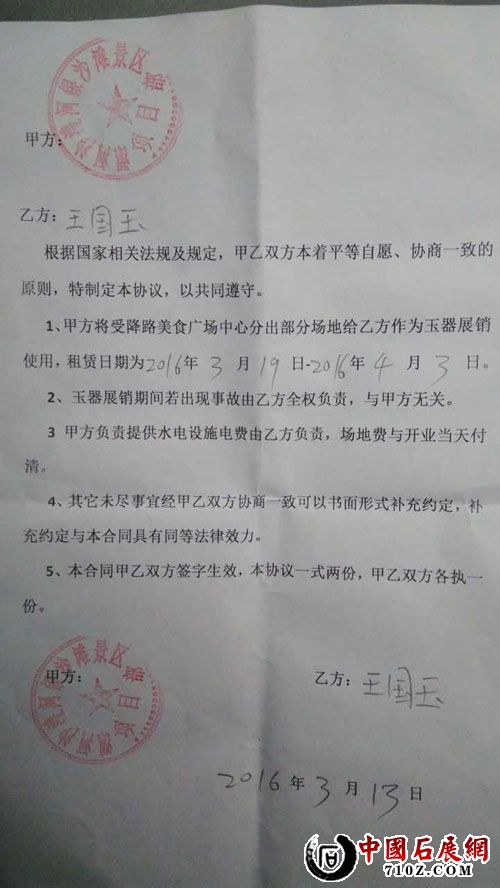 漯河沙澧河银沙滩景区
项目部
甲方：
乙方：王国玉
根据国家相关法规及规定，甲乙双方本着平等自愿、协商一致的
原则，特制定本协议，以共同遵守。
1、甲方将受降路美食广场中心分出部分场地给乙方作为玉器展销
使用，租赁日期为2016年 3 月 19 日-2016年 4 月 3 日。
2、玉器展销期间若出现事故由乙方全权负责，与甲方无关。
3 甲方负责提供水电设施电费由乙方负责，场地费与开业当天付
清。
4、其它未尽事宜经甲乙双方协商一致可以书面形式补充约定，补
充约定与本合同具有同等法律效力。
5、本合同甲乙双方签字生效，本协议一式两份，甲乙双方各执一
份。
漯河沙澧河银沙滩景区
项目部
甲方： 乙方：王国玉
2016 年 3 月 13 日
中國石展網
7102.COM